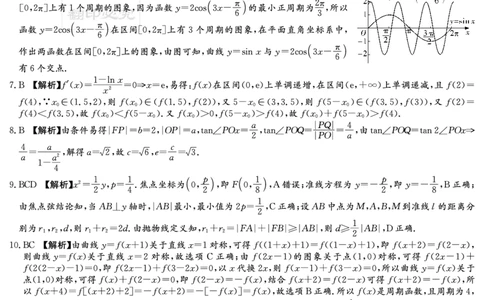 [0,2π]上有1个周期的图象,因为函数 y=2cos(3x−π/6)的最小正周期为2π/3,所以
函数 y=2cos(3x−π/6)在区间[0,2π]上有3个周期的图象,在平面直角坐标系中,
作出两函数在区间[0,2π]上的图象,由图可知,曲线 y=sin x 与 y=2cos(3x−π/6)
有6个交点.
y=sin x
7.B 【解析】f′(x)=(1−ln x)/x²=0⇒x=e,易得:f(x)在区间(0,e)上单调递增,在区间(e,+∞)上单调递减,且 f(2)=
f(4),∵x₀∈(1.5,2),则 f(x₀)∈(f(1.5),f(2)),又5−x₀∈(3,3.5),则 f(5−x₀)∈(f(3.5),f(3)),又 f(2)=
f(4)<f(3.5),故 f(x₀)<f(5−x₀).又 f(x₀)>0,f(5−x₀)>f(4),故 f(x₀)+f(5−x₀)>f(4).
8.B 【解析】由条件易得|FP|=b=2,|OP|=a,tan∠POx=a/2,tan∠POQ=|PQ|/|PO|=4/a,由 tan∠POQ=tan2∠POx⇒
4/a=a/(1−a²/4),解得a=√2,故c=√6,e=c/a=√3.
9.BCD 【解析】x²=1/2 y,p=1/4,焦点坐标为(0,p/2),即 F(0,1/8),A错误;准线方程为 y=−p/2,即 y=−1/8,B正确;
由焦点弦结论知,当AB⊥y轴时,|AB|最小,最小值为2p=1/2,C正确;设AB中点为M,A,B,M到准线l的距离分
别为r₁,r₂,d,则r₁+r₂=2d.由抛物线定义知,r₁+r₂=|FA|+|FB|≥|AB|,则 d≥1/2|AB|,D正确.
10.BC 【解析】由曲线 y=f(x+1)关于直线x=1对称,可得 f((1+x)+1)=f((1−x)+1),即 f(x+2)=f(2−x),
则曲线 y=f(x)关于直线 x=2 对称,故选项C正确;由 f(2x−1)的图象关于点(1,0)对称,可得 f(2x−1)+
f(2(2−x)−1)=0,即 f(2x−1)+f(3−2x)=0,以x代换2x,则 f(x−1)+f(3−x)=0,所以曲线 y=f(x)关于
点(1,0)对称,可得 f(x)+f(2−x)=0,即 f(2−x)=−f(x),结合 f(x+2)=f(2−x)可得 f(x+2)=−f(x),所
以 f(x+4)=f[(x+2)+2]=−f(x+2)=−[−f(x)]=f(x),故选项B正确.所以 f(x)是周期函数,且周期为4,